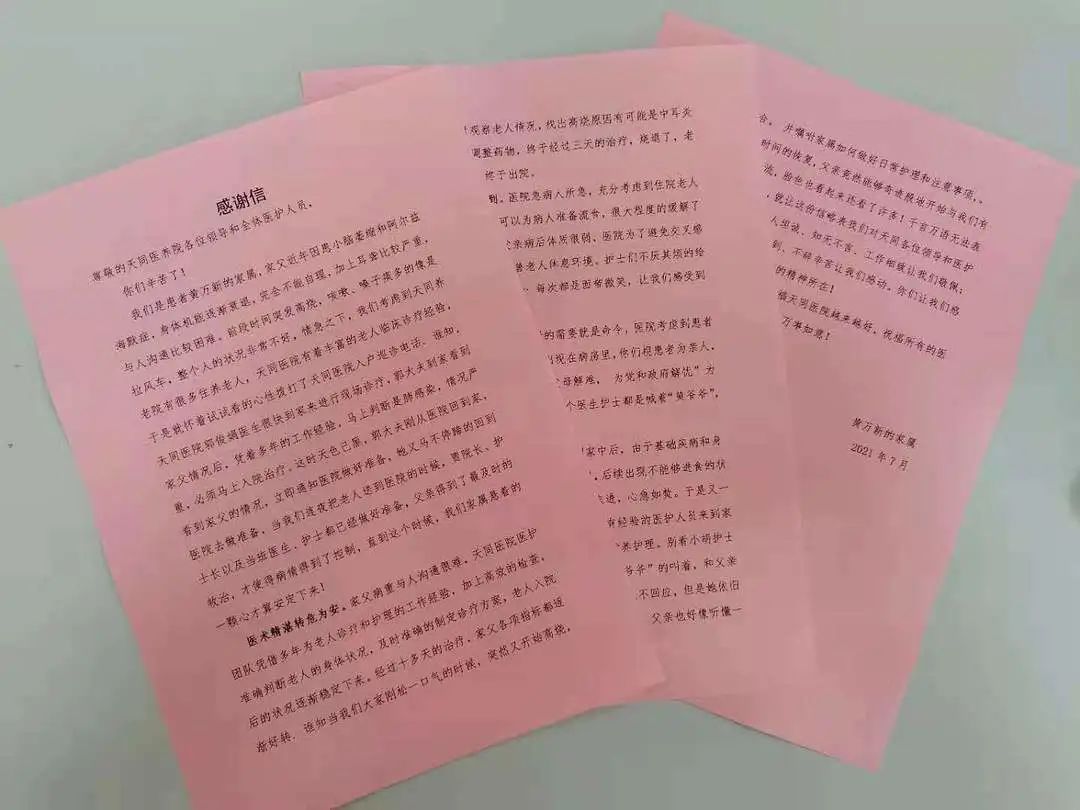 感谢信
尊敬的天同医养院各位领导和全体医护人员，
你们辛苦了！
我们是患者黄万新的家属，家父近年因患小脑萎缩和阿尔兹
海默症，身体机能逐渐衰退，完全不能自理，加上耳聋比较严重，
与人沟通比较困难。前段时间突发高烧，咳嗽、嗓子痰多的像是
拉风车，整个人的状况非常不好，情急之下，我们考虑到天同养
老院有很多住养老人，天同医院有着丰富的老人临床诊疗经验，
于是就怀着试试看的心性拨打了天同医院入户巡诊电话。谁知，
天同医院郭俊娟医生很快到家来进行现场诊疗，郭大夫到家看到
家父情况后，凭着多年的工作经验，马上判断是肺感染，情况严
重，必须马上入院治疗。这时天色已黑，郭大夫刚从医院回到家，
看到家父的情况，立即通知医院做好准备，她又马不停蹄的回到
医院去做准备，当我们连夜把老人送到医院的时候，贾院长、护
士长以及当班医生、护士都已经做好准备，父亲得到了最及时的
救治，才使得病情得到了控制，直到这个时候，我们家属悬着的
一颗心才算安定下来！
医术精湛转危为安。家父病重与人沟通很难，天同医院医护
团队凭借多年为老人诊疗和护理的工作经验，加上高效的检查，
准确判断老人的身体状况，及时准确的制定诊疗方案，老人入院
后的状况逐渐稳定下来。经过十多天的治疗，家父各项指标都逐
渐好转．谁知当我们大家刚松一口气的时候，突然又开始高烧，
观察老人情况，找出高烧原因有可能是中耳炎
调整药物，终于经过三天的治疗，烧退了，老
终于出院。
到。医院急病人所急，充分考虑到住院老人
可以为病人准备流食，很大程度的缓解了
父亲病后体质很弱，医院为了避免交叉感
老人休息环境。护士们不厌其烦的给
每次都是面带微笑，让我们感受到
的需要就是命令，医院考虑到患者
现在病房里，你们视患者为亲人，
父母解难，为党和政府解忧”为
个医生护士都是喊着“黄爷爷”，
家中后，由于基础疾病和身
，后续出现不能够进食的状
，心急如焚。于是又一
有经验的医护人员来到家
养护理。别看小胡护士
爷爷”的叫着，和父亲
不回应，但是她依旧
父亲也好像听懂一
合。并嘱对家属如何做好日常护理和注意事项，
时间的恢复，父亲竟然能够奇迹般地开始与我们有
流，脸色也看起来还看了许多！千言万语无法表
，就让这份信略表我们对天同各位领导和医护
人坦诚、知无不言、工作细致让我们敬佩；
到、不辞辛苦让我们感动。你们让我们感
的精神所在！
福天同医院越来越好，祝福所有的医
万事如意！
黄万新的家属
2021 年 7 月